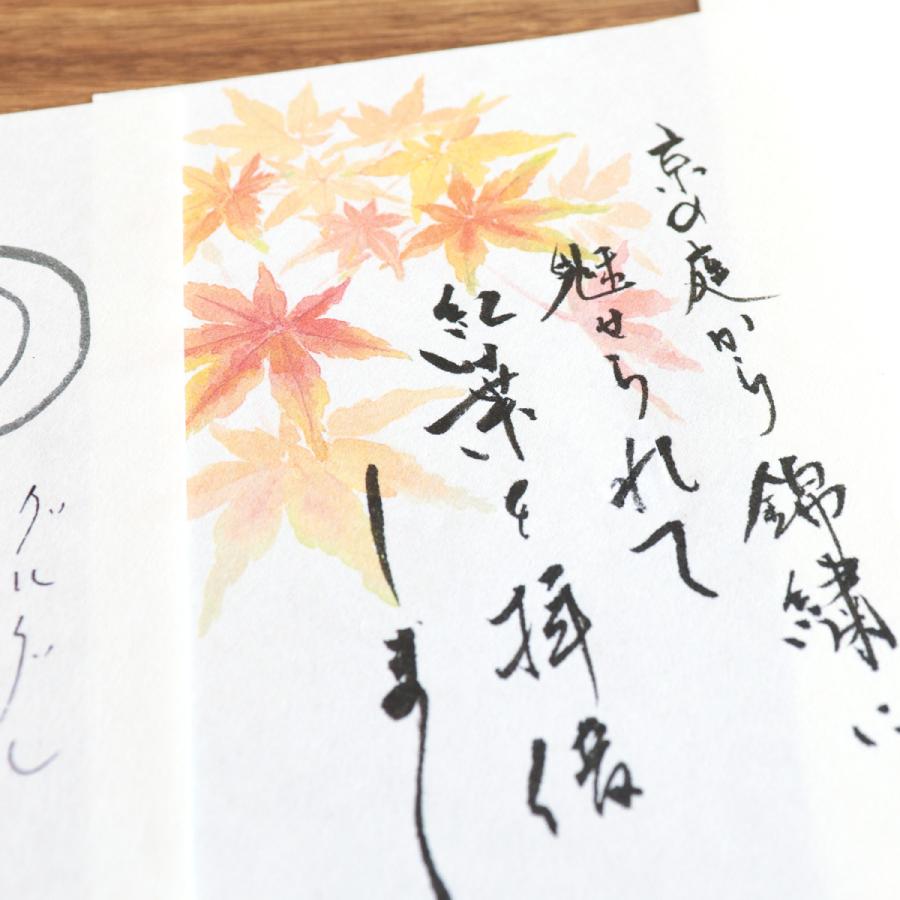 京の庭から錦繍に
魅せられて
紅葉を拝借
しまし
グルグル